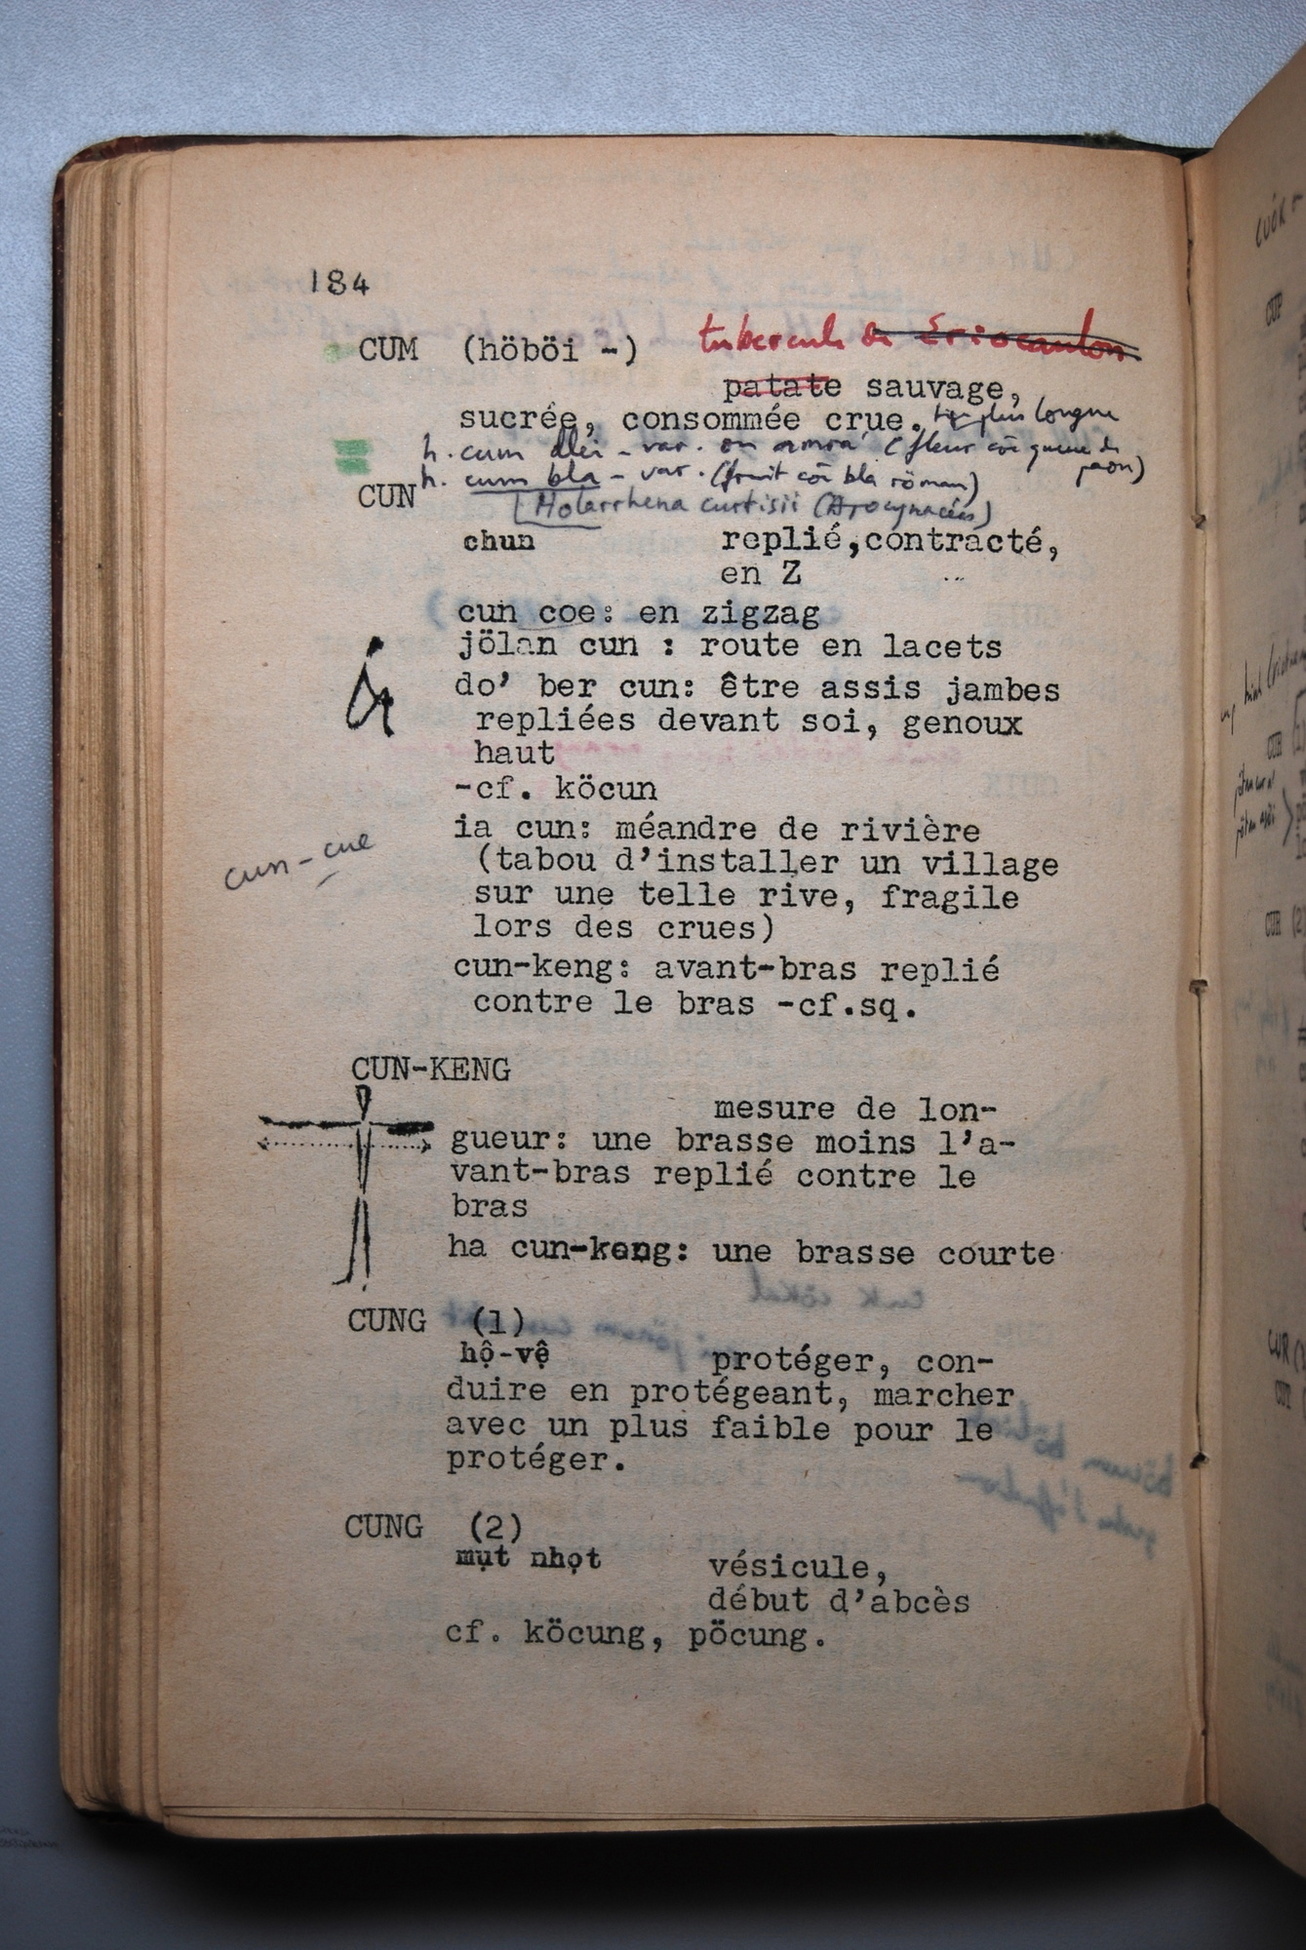 184
CUM (höböi -) tubercule de Eriocaulon
patate sauvage,
sucrée, consommée crue. plus longue
h. cum dlei - var. ou amra (fleur côi queue de paon)
h. cum bla - var. (fruit côi bla röman)
CUN
Holarrhena curtisii (Apocynacées)
chun replié,contracté,
en Z
cun coe: en zigzag
jölan cun : route en lacets
do' ber cun: être assis jambes
repliées devant soi, genoux
haut
-cf. köcun
ia cun: méandre de rivière
cun-cue
(tabou d'installer un village
sur une telle rive, fragile
lors des crues)
cun-keng: avant-bras replié
contre le bras -cf.sq.
CUN-KENG
mesure de lon-
gueur: une brasse moins l'a-
vant-bras replié contre le
bras
ha cun-keng: une brasse courte
CUNG (1)
hộ-vệ protéger, con-
duire en protégeant, marcher
avec un plus faible pour le
protéger.
CUNG (2)
mụt nhọt vésicule,
début d'abcès
cf. köcung, pöcung.
CUP